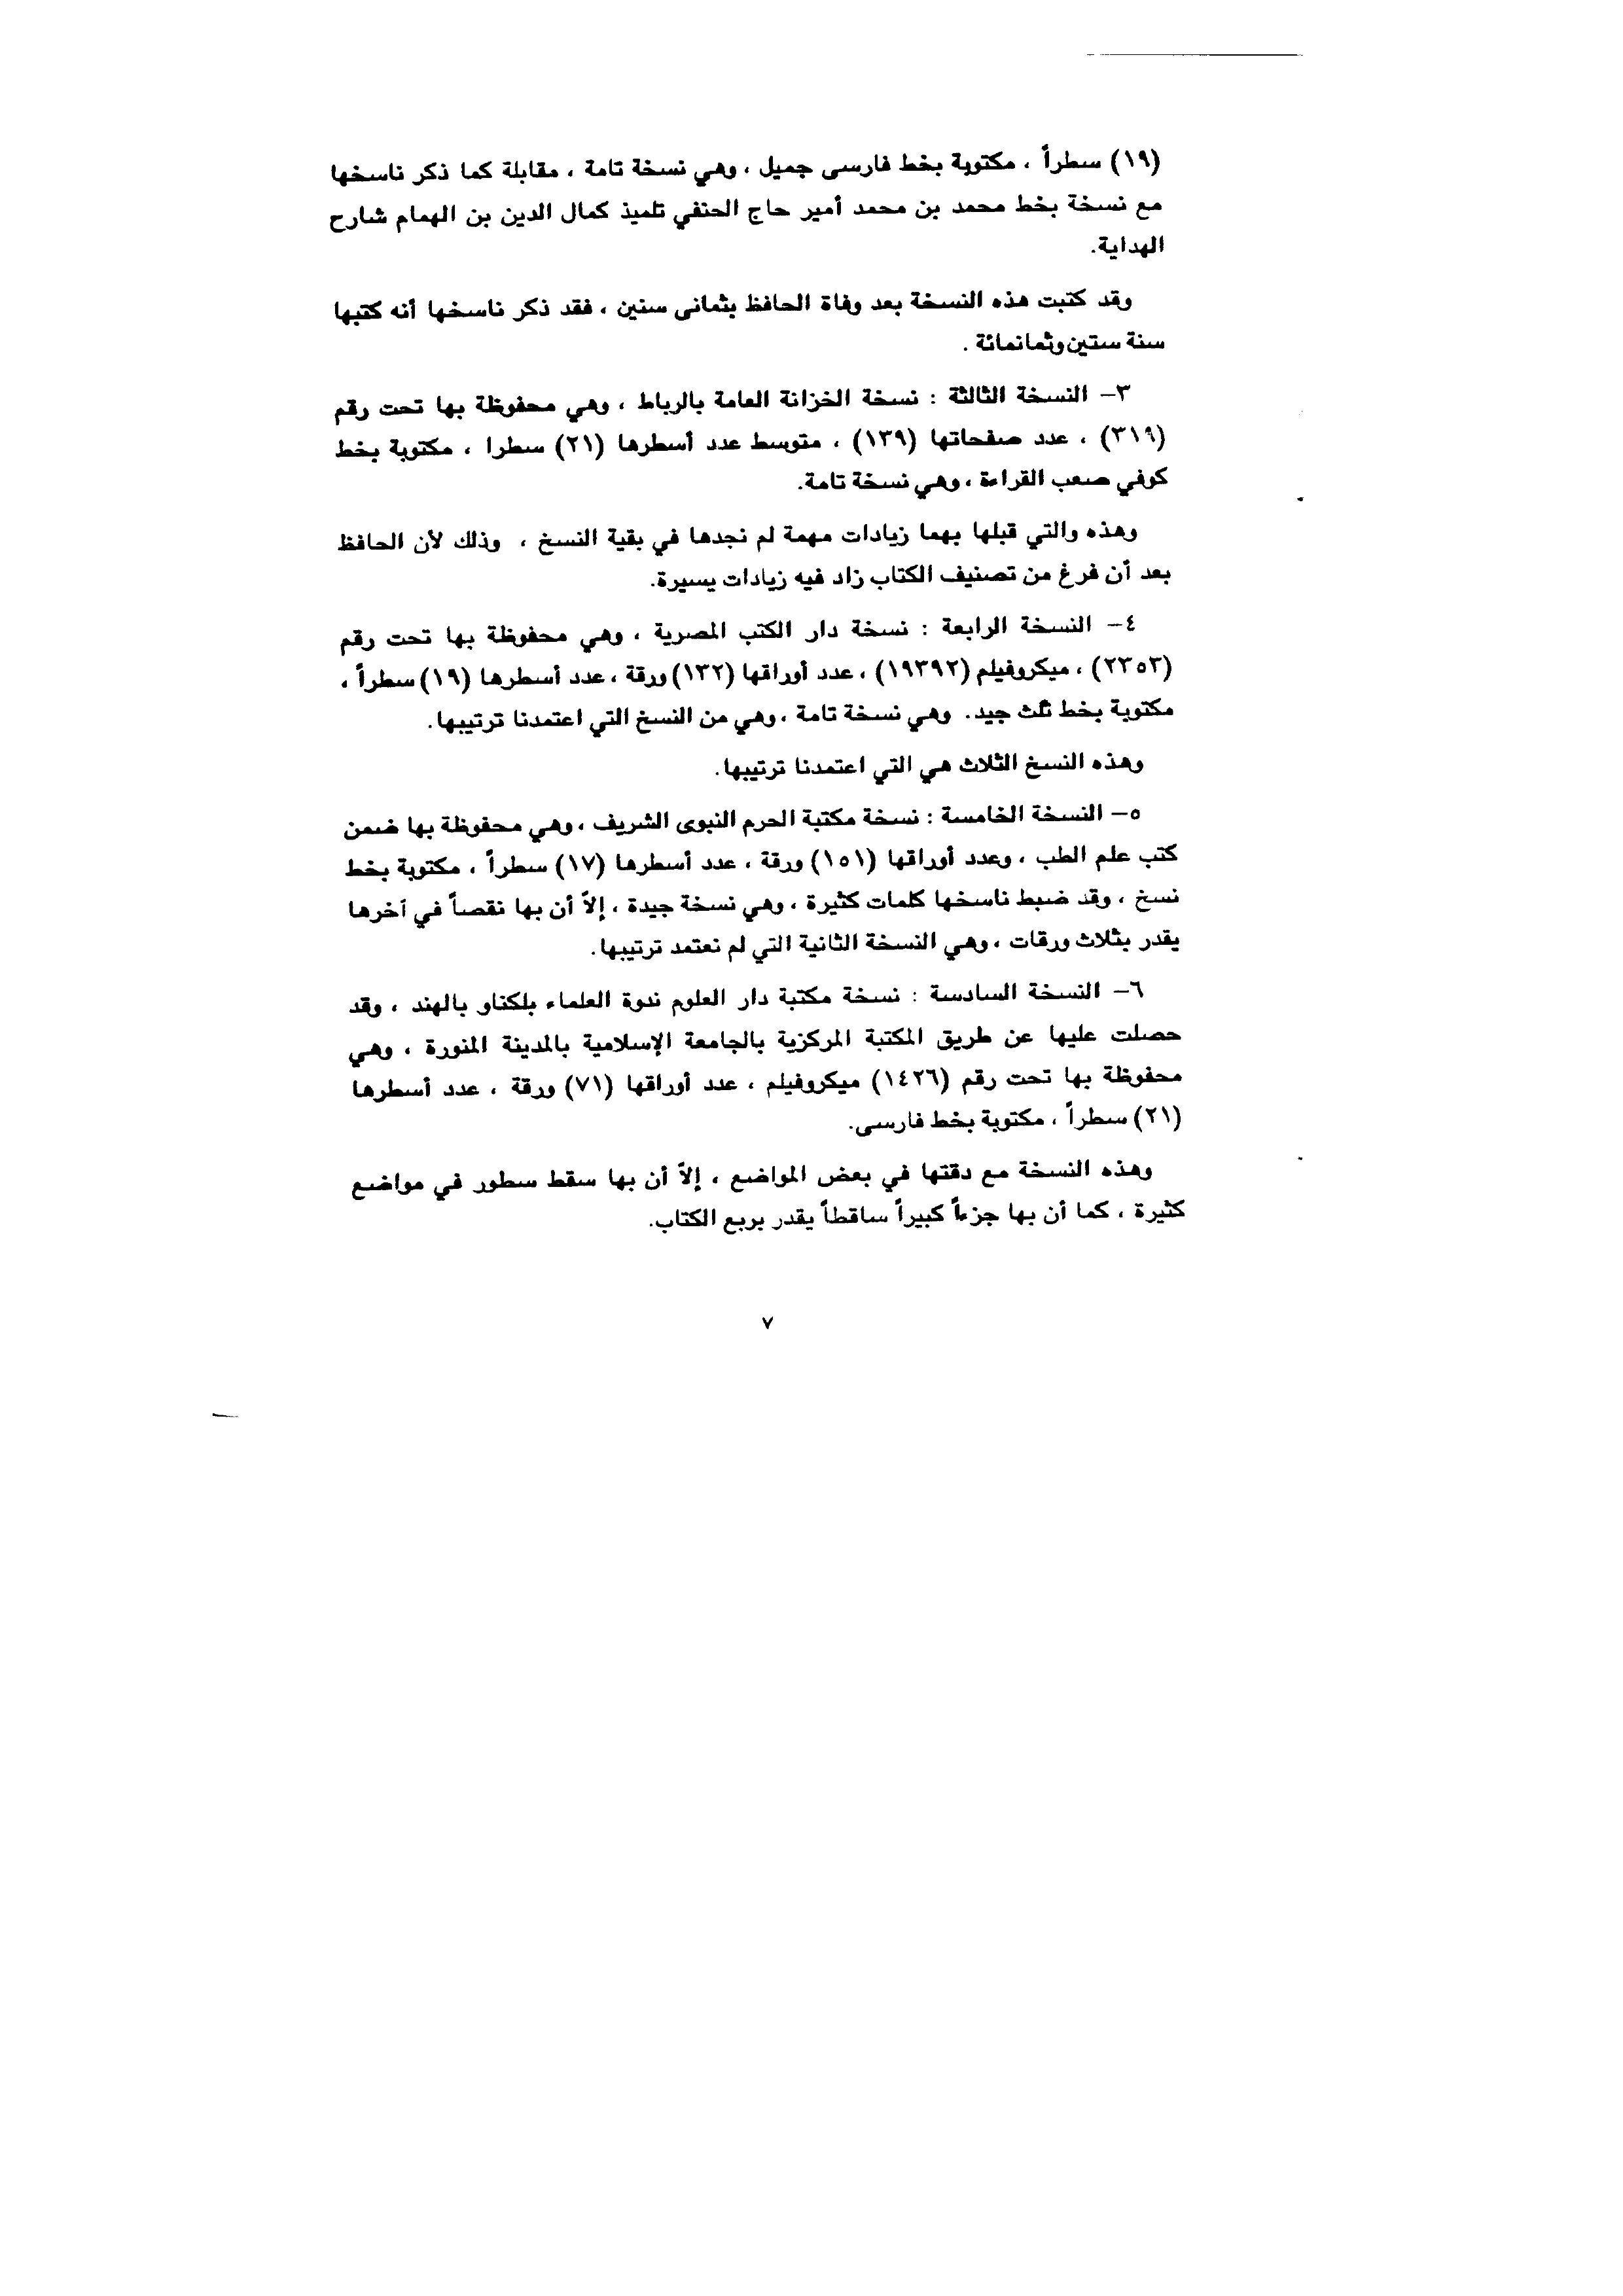 (١٩) سطراً ، مكتوبة بخط فارسى جميل ، وهي نسخة تامة ، مقابلة كما ذكر ناسخها
مع نسخة بخط محمد بن محمد أمير حاج الحنفي تلميذ كمال الدين بن الهمام شارح
الهداية.
وقد كتبت هذه النسخة بعد وفاة الحافظ بثمانى سنين ، فقد ذكر ناسخها أنه كتبها
سنة ستين وثمانمائة .
٣– النسخة الثالثة : نسخة الخزانة العامة بالرباط ، وهي محفوظة بها تحت رقم
(٣١٩) ، عدد صفحاتها (١٣٩) ، متوسط عدد أسطرها (٢١) سطرا ، مكتوبة بخط
كوفي صعب القراءة ، وهي نسخة تامة.
وهذه والتي قبلها بهما زيادات مهمة لم نجدها في بقية النسخ ، وذلك لأن الحافظ
بعد أن فرغ من تصنيف الكتاب زاد فيه زيادات يسيرة.
٤– النسخة الرابعة : نسخة دار الكتب المصرية ، وهي محفوظة بها تحت رقم
(٢٣٥٣) ، ميكروفيلم (١٩٣٩٢) ، عدد أوراقها (١٣٢) ورقة ، عدد أسطرها (١٩) سطراً ،
مكتوبة بخط ثلث جيد. وهي نسخة تامة ، وهي من النسخ التي اعتمدنا ترتيبها.
وهذه النسخ الثلاث هي التي اعتمدنا ترتيبها.
٥– النسخة الخامسة : نسخة مكتبة الحرم النبوى الشريف ، وهي محفوظة بها ضمن
كتب علم الطب ، وعدد أوراقها (١٥١) ورقة ، عدد أسطرها (١٧) سطراً ، مكتوبة بخط
نسخ ، وقد ضبط ناسخها كلمات كثيرة ، وهي نسخة جيدة ، إلاّ أن بها نقصاً في آخرها
يقدر بثلاث ورقات ، وهي النسخة الثانية التي لم نعتمد ترتيبها.
٦– النسخة السادسة : نسخة مكتبة دار العلوم ندوة العلماء بلكناو بالهند ، وقد
حصلت عليها عن طريق المكتبة المركزية بالجامعة الإسلامية بالمدينة المنورة ، وهي
محفوظة بها تحت رقم (١٤٢٦) ميكروفيلم ، عدد أوراقها (٧١) ورقة ، عدد أسطرها
(٢١) سطراً ، مكتوبة بخط فارسى.
وهذه النسخة مع دقتها في بعض المواضع ، إلاّ أن بها سقط سطور في مواضع
كثيرة ، كما أن بها جزءاً كبيراً ساقطاً يقدر بربع الكتاب.
٧